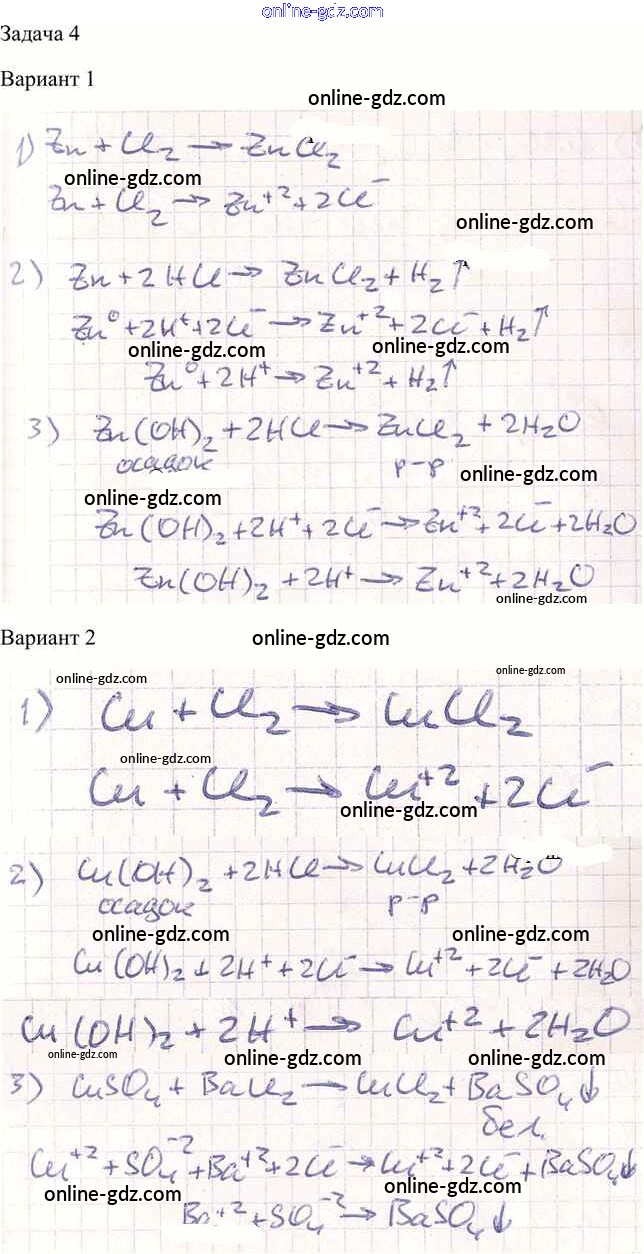 online-gdz.com
Задача 4
Вариант 1
online-gdz.com
1) Zn + Cl2 → ZnCl2
online-gdz.com
Zn + Cl2 → Zn+2 + 2Cl−
online-gdz.com
2) Zn + 2HCl → ZnCl2 + H2↑
Zn0 + 2H+ + 2Cl− → Zn+2 + 2Cl− + H2↑
online-gdz.com online-gdz.com
Zn0 + 2H+ → Zn+2 + H2↑
3) Zn(OH)2 + 2HCl → ZnCl2 + 2H2O
осадок р-р
online-gdz.com
online-gdz.com
Zn(OH)2 + 2H+ + 2Cl− → Zn+2 + 2Cl− + 2H2O
Zn(OH)2 + 2H+ → Zn+2 + 2H2O
online-gdz.com
Вариант 2 online-gdz.com
online-gdz.com online-gdz.com
1) Cu + Cl2 → CuCl2
online-gdz.com
Cu + Cl2 → Cu+2 + 2Cl−
online-gdz.com
2) Cu(OH)2 + 2HCl → CuCl2 + 2H2O
осадок р-р
online-gdz.com online-gdz.com
Cu(OH)2 + 2H+ + 2Cl− → Cu+2 + 2Cl− + 2H2O
Cu(OH)2 + 2H+ → Cu+2 + 2H2O
online-gdz.com online-gdz.com online-gdz.com
3) CuSO4 + BaCl2 → CuCl2 + BaSO4↓
бел.
Cu+2 + SO4−2 + Ba+2 + 2Cl− → Cu+2 + 2Cl− + BaSO4↓
online-gdz.com online-gdz.com
Ba+2 + SO4−2 → BaSO4↓